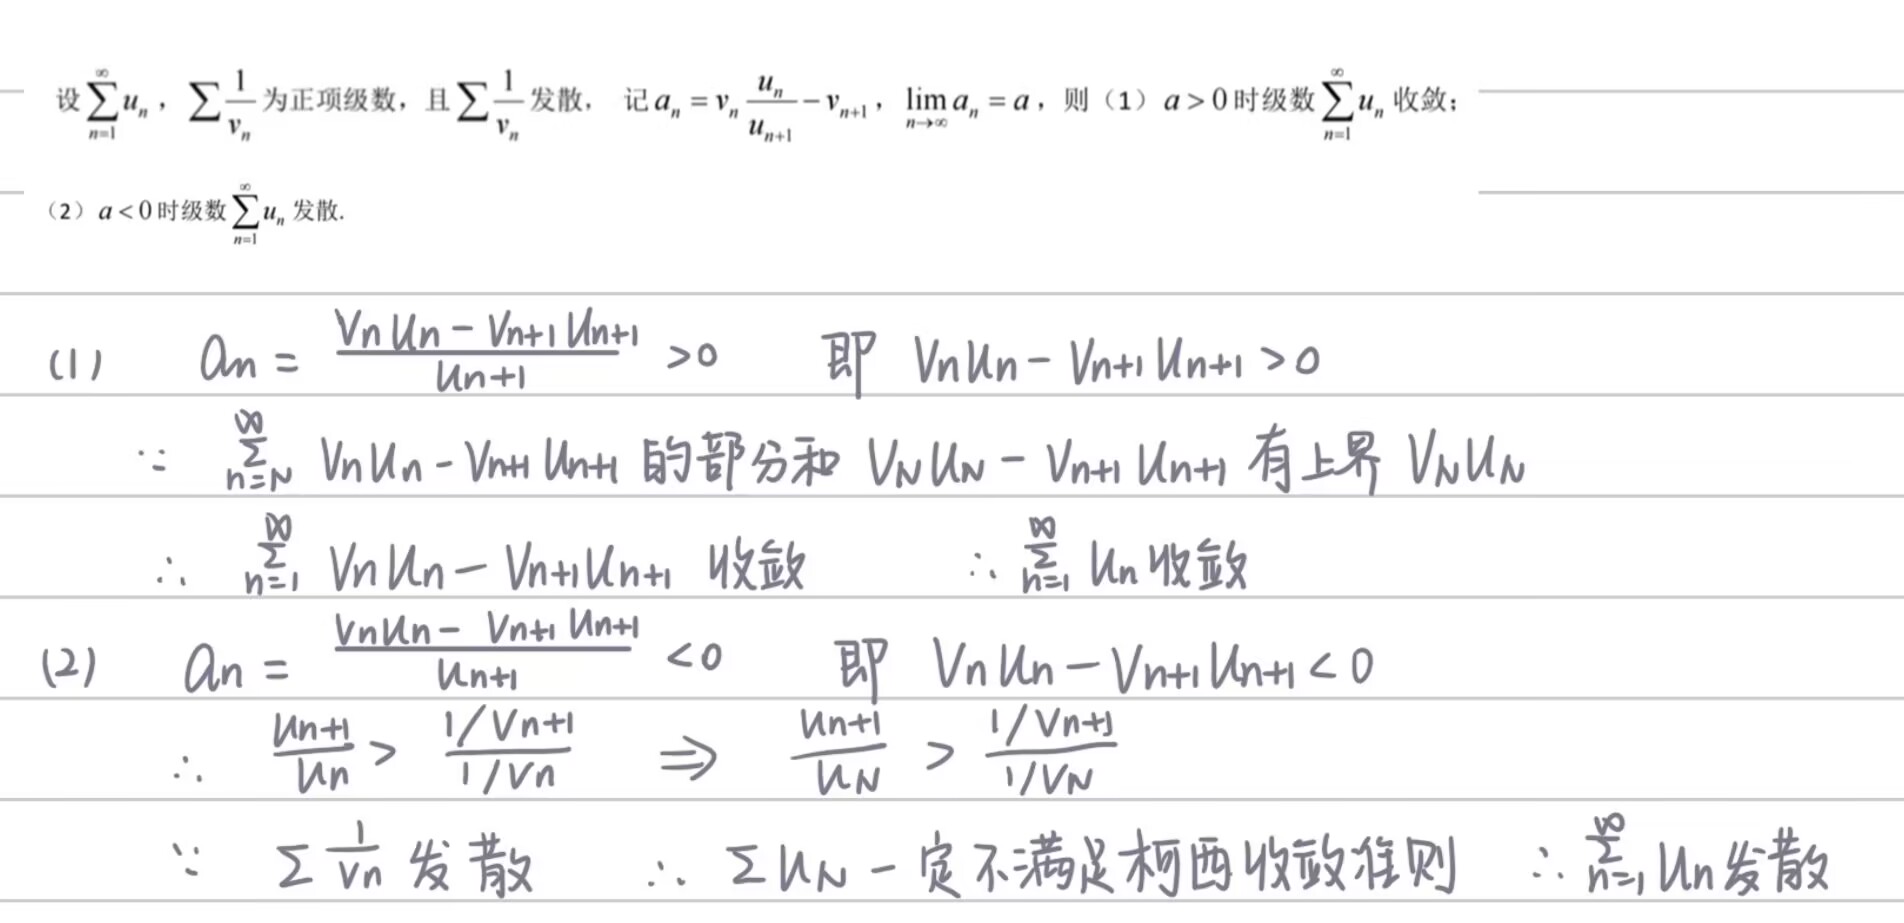 设 $\sum_{n=1}^{\infty} u_n$，$\sum \frac{1}{v_n}$ 为正项级数，且 $\sum \frac{1}{v_n}$ 发散， 记 $a_n = v_n \frac{u_n}{u_{n+1}} - v_{n+1}$，$\lim_{n\to\infty} a_n = a$，则（1）$a > 0$ 时级数 $\sum_{n=1}^{\infty} u_n$ 收敛；
（2）$a < 0$ 时级数 $\sum_{n=1}^{\infty} u_n$ 发散.
(1) $a_n = \frac{V_n U_n - V_{n+1} U_{n+1}}{U_{n+1}} > 0$ 即 $V_n U_n - V_{n+1} U_{n+1} > 0$
∵ $\sum_{n=N}^{\infty} V_n U_n - V_{n+1} U_{n+1}$ 的部分和 $V_N U_N - V_{n+1} U_{n+1}$ 有上界 $V_N U_N$
∴ $\sum_{n=1}^{\infty} V_n U_n - V_{n+1} U_{n+1}$ 收敛 ∴ $\sum_{n=1}^{\infty} U_n$ 收敛
(2) $a_n = \frac{V_n U_n - V_{n+1} U_{n+1}}{U_{n+1}} < 0$ 即 $V_n U_n - V_{n+1} U_{n+1} < 0$
∴ $\frac{U_{n+1}}{U_n} > \frac{1/V_{n+1}}{1/V_n}$ ⇒ $\frac{U_{n+1}}{U_N} > \frac{1/V_{n+1}}{1/V_N}$
∵ $\sum \frac{1}{V_n}$ 发散 ∴ $\sum U_N$ 一定不满足柯西收敛准则 ∴ $\sum_{n=1}^{\infty} U_n$ 发散